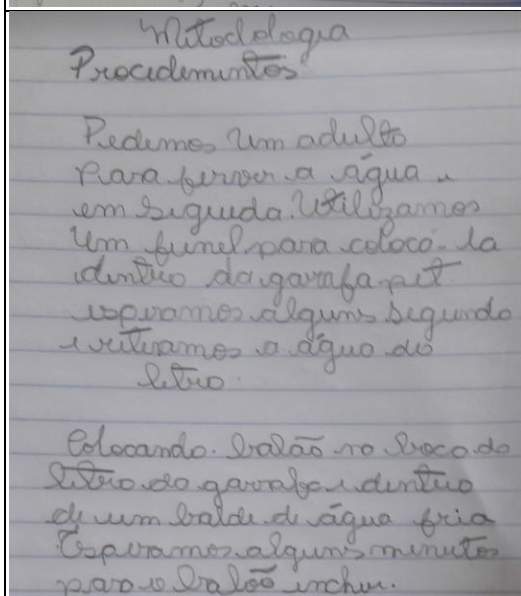 Metodologia
Procedimentos
Pedimos um adulto
para ferver a água e
em seguida. Utilizamos
um funel para coloco-la
dentro da garafa pet
esperamos alguns segundo
e retiramos a água do
litro.
Colocando. balão no boco do
litro do garrafa e dentro
de um balde de água fria
Esperamos alguns minutos
para o balão encher.